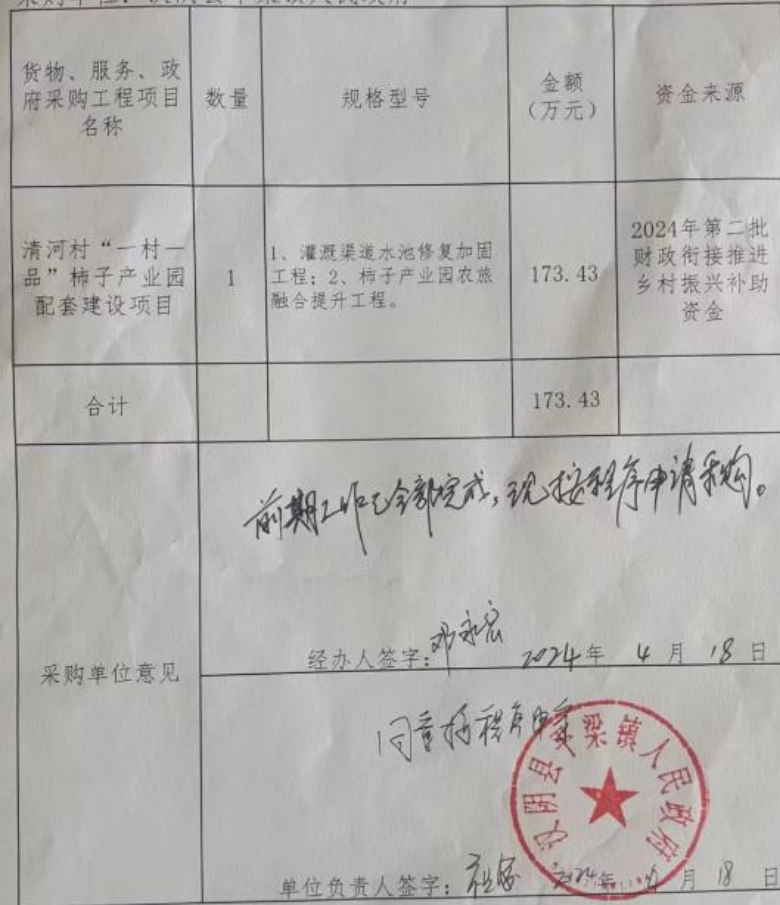 货物、服务、政
府采购工程项目
名称
数量
规格型号
金额
（万元）
资金来源
清河村“一村一
品”柿子产业园
配套建设项目
1
1、灌溉渠道水池修复加固
工程；2、柿子产业园农旅
融合提升工程。
173.43
2024年第二批
财政衔接推进
乡村振兴补助
资金
合计
173.43
采购单位意见
前期工作已全部完成，现按程序申请采购。
经办人签字：邓永宏 2024年 4月 18日
同意按程序申
汉阴县 梁镇人民政府
单位负责人签字： 2024年 4月 18日